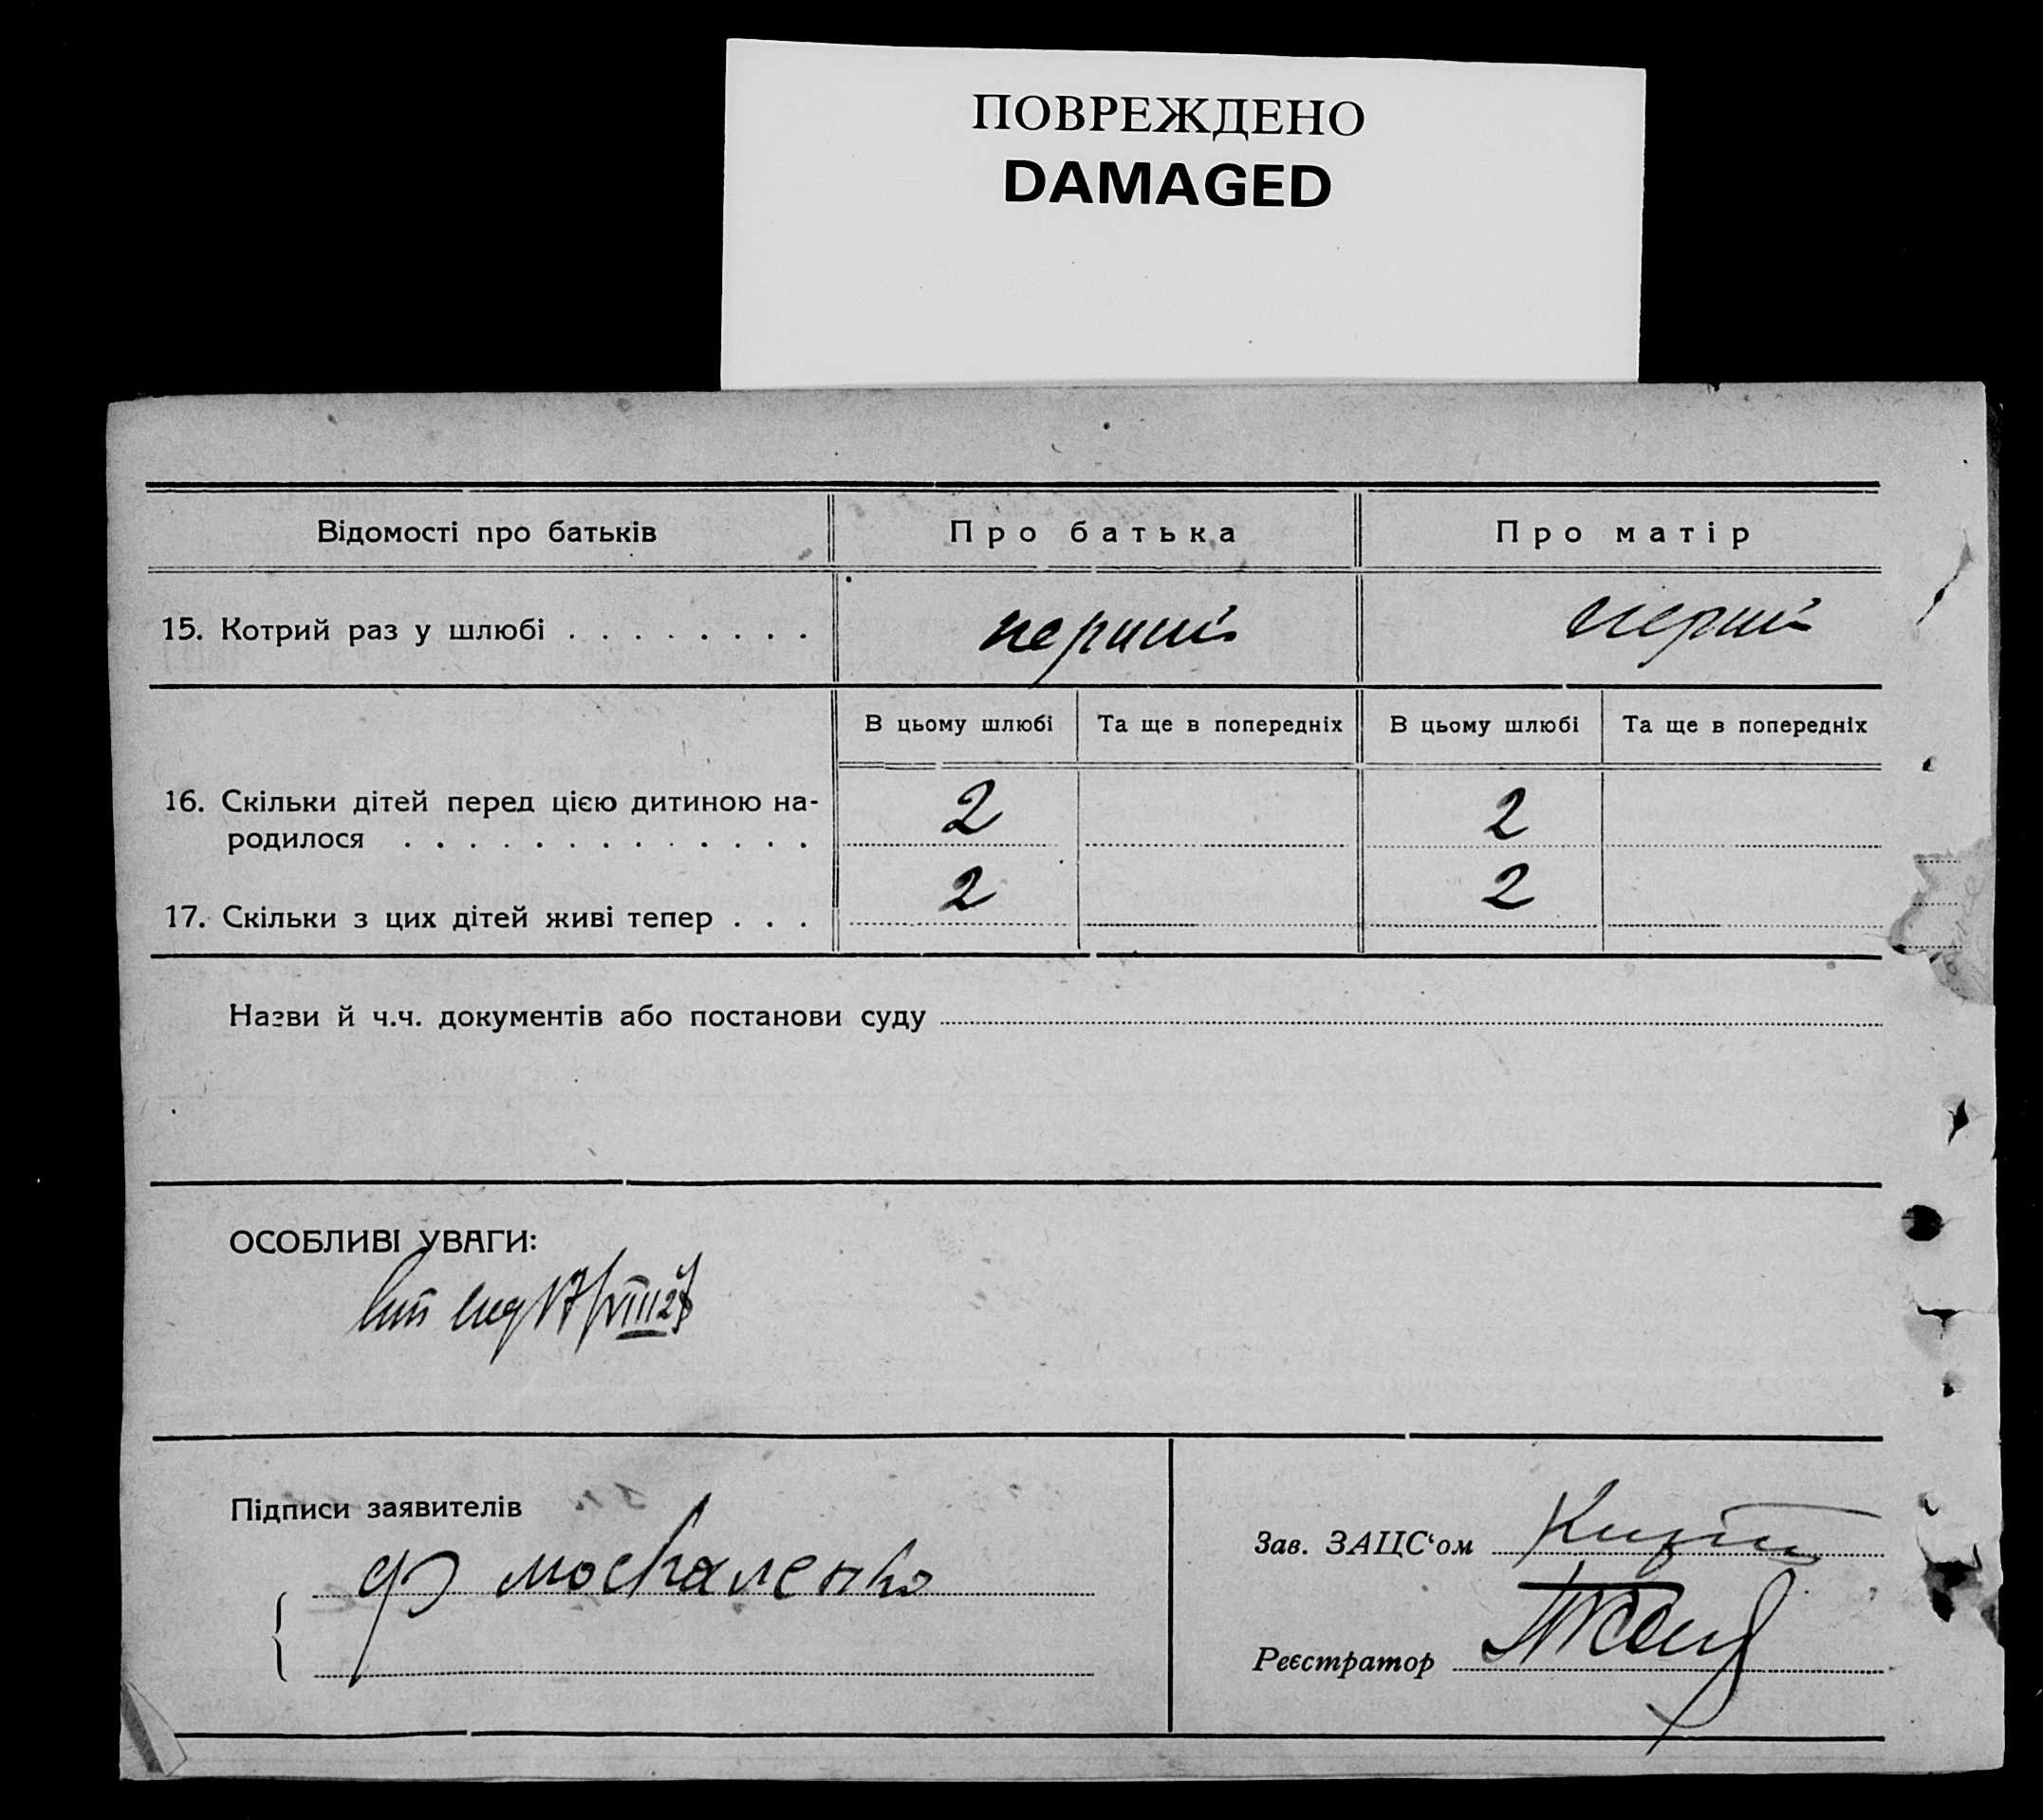 ПОВРЕЖДЕНО
DAMAGED
Відомості про батьків
Про батька
Про матір
15. Котрий раз у шлюбі . . . . . . . .
перший
перший
В цьому шлюбі
Та ще в попередніх
В цьому шлюбі
Та ще в попередніх
16. Скільки дітей перед цією дитиною на-
родилося . . . . . . . . . . . . .
2
2
17. Скільки з цих дітей живі тепер . . .
2
2
Назви й ч.ч. документів або постанови суду
ОСОБЛИВІ УВАГИ:
Підписи заявителів
Ф Москаленко
Зав. ЗАЦС‘ом
Реєстратор